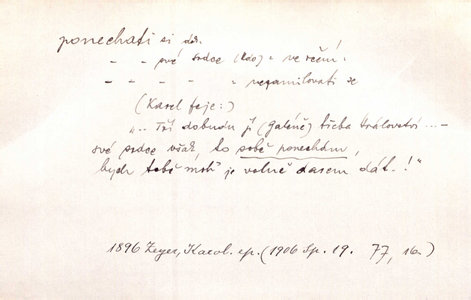 ponechati si dok.
- - své srdce (kdo) = ve rčení:
- - - - - = nezamilovati se
(Karel feje:)
„.. Tři dobudu jí (Galéně) třeba království ... –
své srdce však, to sobě ponechám,
bych tobě moh' je volně časem dát.!“
1896 Zeyer, Karol. ep. (1906 Sp. 19. 77, 16.)